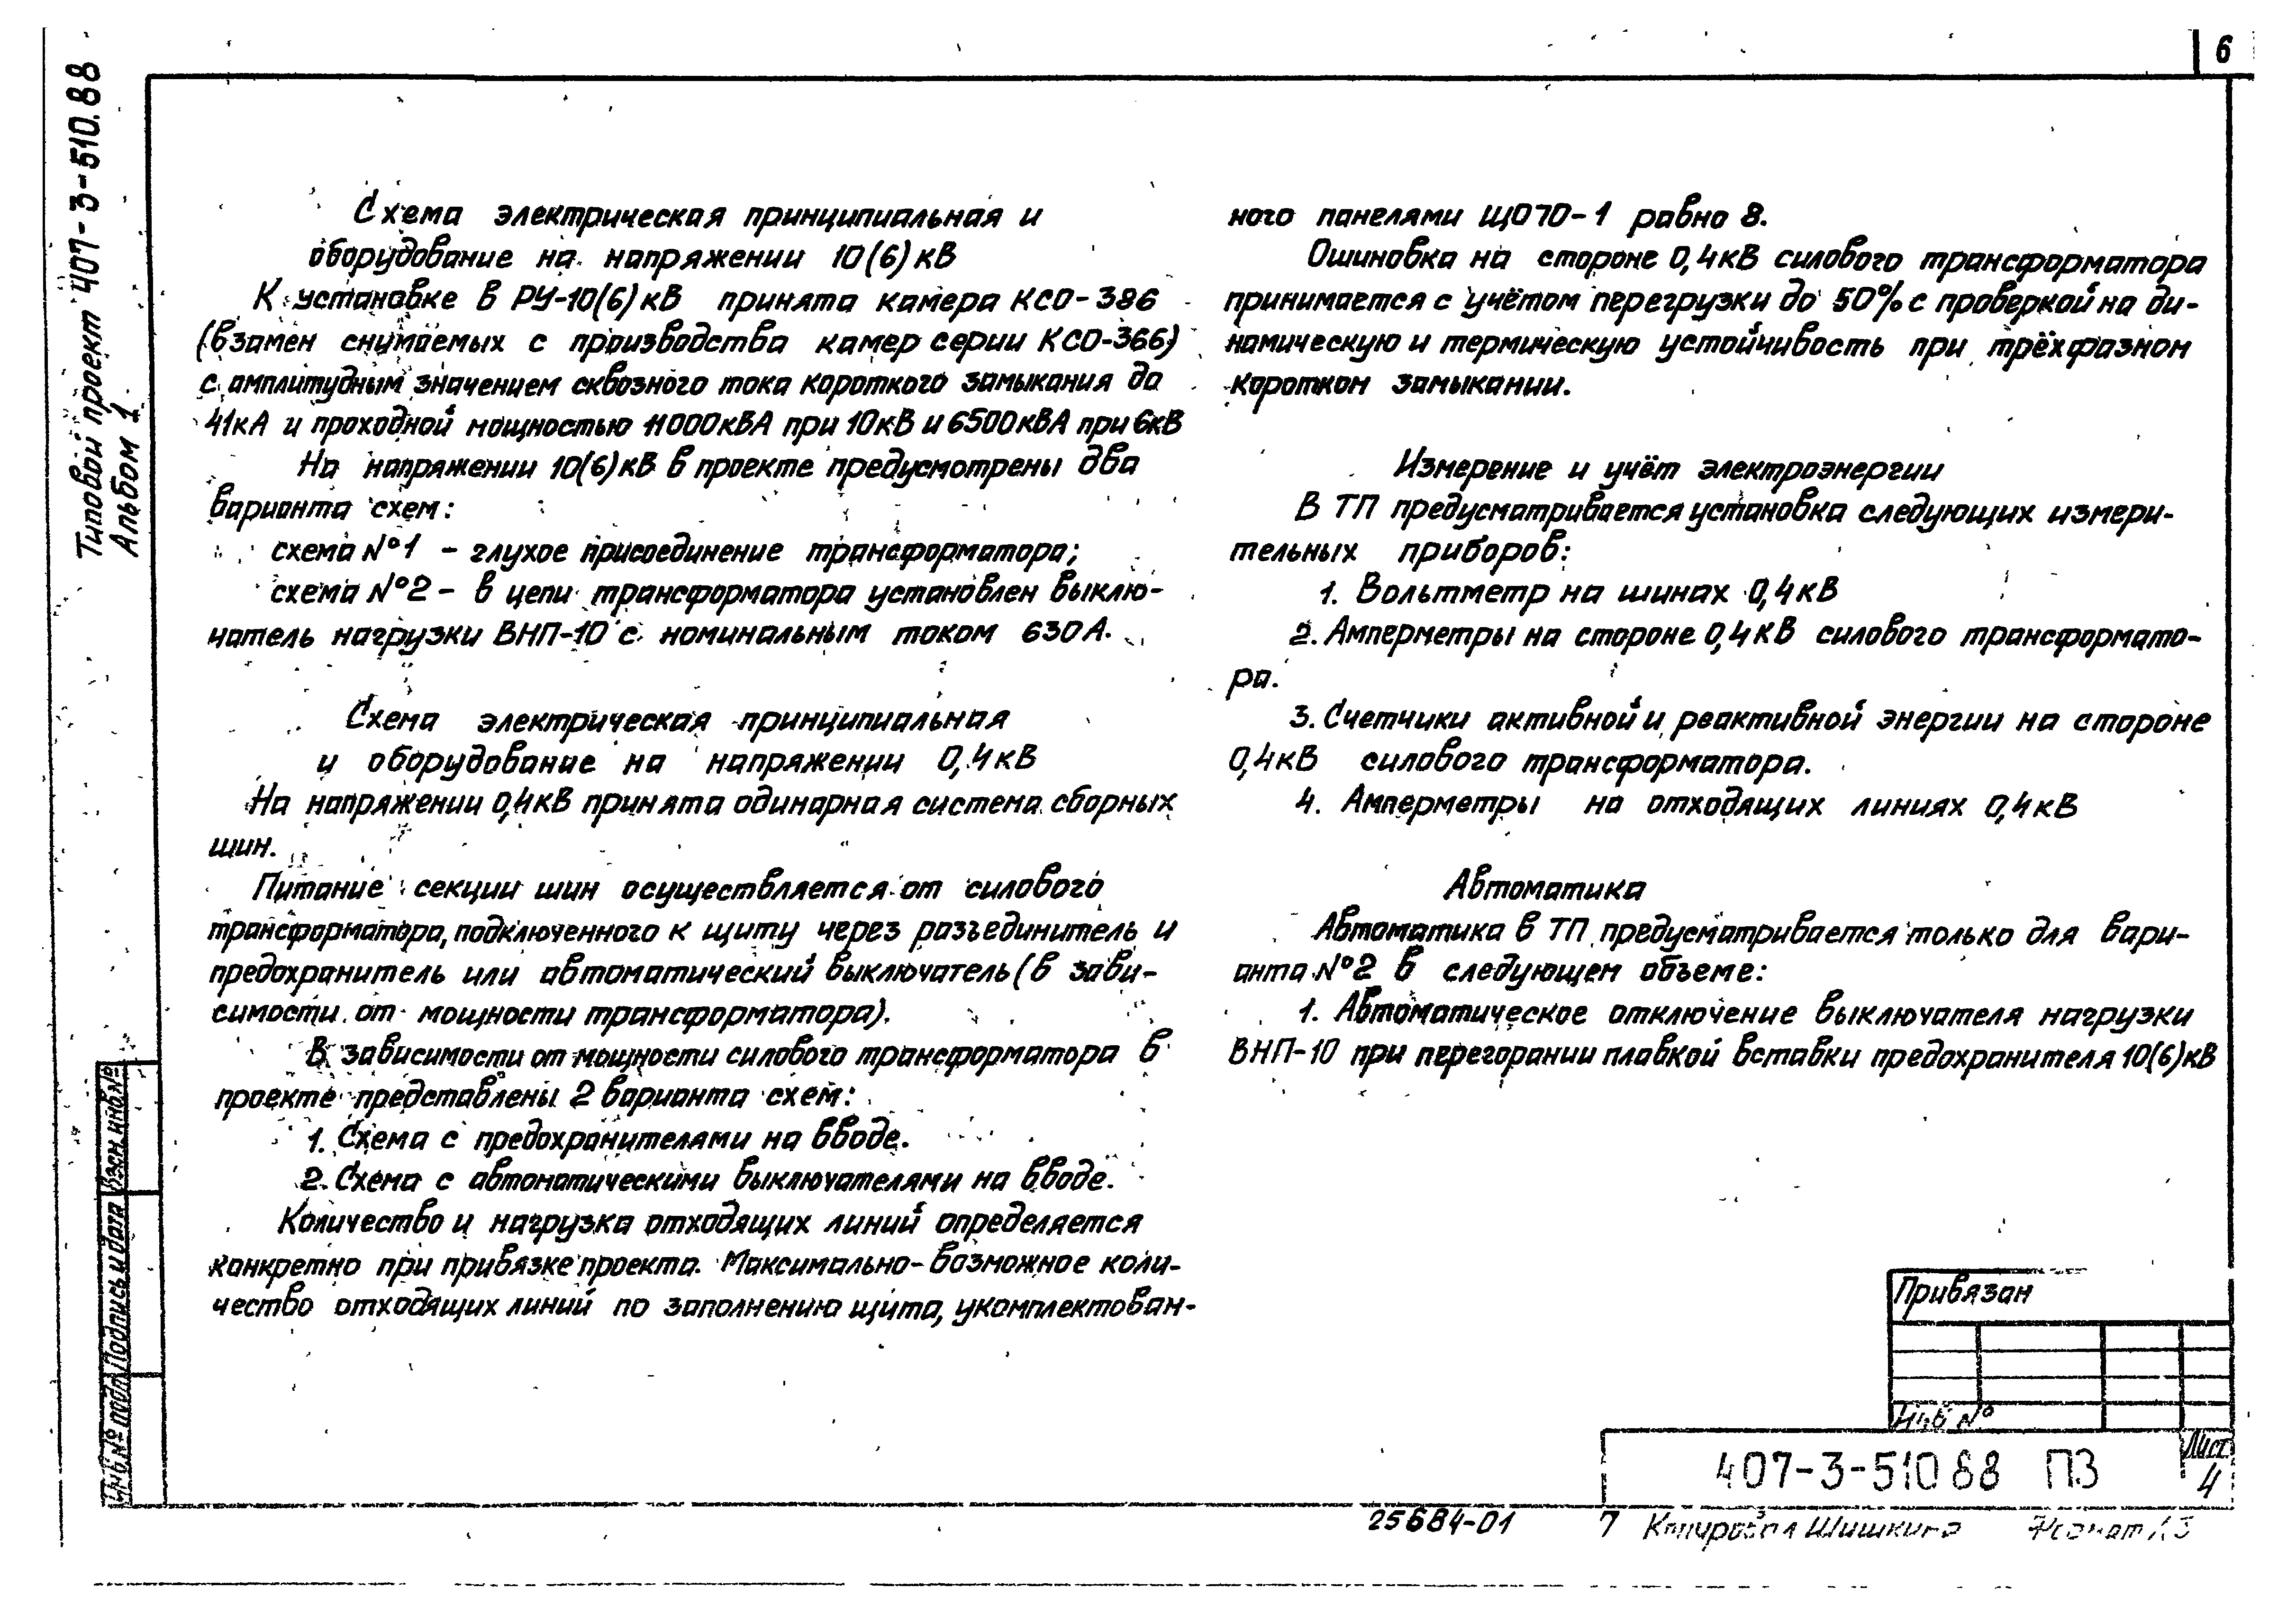 6
Типовой проект 407-3-510.88
Альбом 1
Схема электрическая принципиальная и
оборудование на напряжении 10(6) кВ
К установке в РУ-10(6) кВ принята камера КСО-386
(взамен снимаемых с производства камер серии КСО-366)
с амплитудным значением сквозного тока короткого замыкания до
41кА и проходной мощностью 11000кВА при 10кВ и 6500кВА при 6кВ
На напряжении 10(6)кВ в проекте предусмотрены два
варианта схем:
схема №1 - глухое присоединение трансформатора;
схема №2 - в цепи трансформатора установлен выклю-
чатель нагрузки ВНП-10 с номинальным током 630А.
Схема электрическая принципиальная
и оборудование на напряжении 0,4кВ
На напряжении 0,4кВ принята одинарная система сборных
шин.
Питание секции шин осуществляется от силового
трансформатора, подключенного к щиту через разъединитель и
предохранитель или автоматический выключатель (в зави-
симости от мощности трансформатора).
В зависимости от мощности силового трансформатора в
проекте представлены 2 варианта схем:
1. Схема с предохранителями на вводе.
2. Схема с автоматическими выключателями на вводе.
Количество и нагрузка отходящих линий определяется
конкретно при привязке проекта. Максимально-возможное коли-
чество отходящих линий по заполнению щита, укомплектован-
ного панелями ЩО70-1 равно 8.
Ошиновка на стороне 0,4кВ силового трансформатора
принимается с учётом перегрузки до 50% с проверкой на ди-
намическую и термическую устойчивость при трёхфазном
коротком замыкании.
Измерение и учёт электроэнергии
В ТП предусматривается установка следующих измери-
тельных приборов:
1. Вольтметр на шинах 0,4кВ
2. Амперметры на стороне 0,4кВ силового трансформато-
ра.
3. Счетчики активной и реактивной энергии на стороне
0,4кВ силового трансформатора.
4. Амперметры на отходящих линиях 0,4кВ
Автоматика
Автоматика в ТП предусматривается только для вари-
анта №2 в следующем объеме:
1. Автоматическое отключение выключателя нагрузки
ВНП-10 при перегорании плавкой вставки предохранителя 10(6)кВ
Взам. инв. №
Подпись и дата
Инв. № подл.
Привязан
Инв №
407-3-510 88 ПЗ
Лист
4
25684-01
7 Копировал Шишкина Формат А3